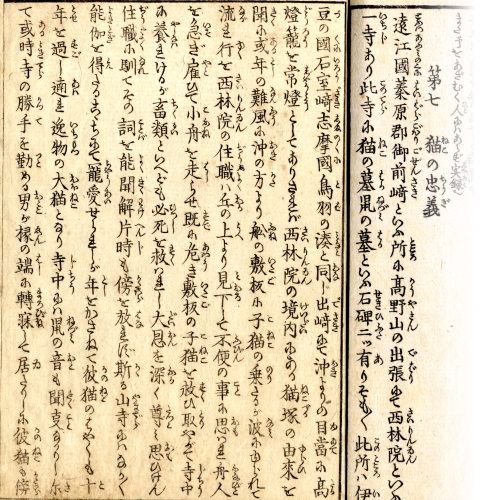 第七　猫の忠義
遠江國蓁原郡御前﨑といふ所に高野山の出張にて西林院といふ
一寺あり此寺に猫の墓鼠の墓といふ石碑二ッ有りそもそも此所ハ伊
豆の國石室﨑志摩國鳥羽の湊と同じ出崎にて沖よりの目當に高
燈籠を常燈としてあり西林院の境内にある猫塚の由來を
聞に或年の難風に沖の方より舩の敷板に子猫の乗たるが波にゆられて
流れ行を西林院の住職ハ丘の上より見下して不便の事に思ハれ舟人
を急ぎ雇ひて小舟を走らせ既に危き敷板の子猫を救ひ取やがて寺中
に養ハれけるが畜類といへども必死を救ハれし大恩を深く尊み思ひけん
住職に馴てその詞を能聞解片時も傍を放れず斯る山寺にハなかなか
能伽を得たるこゝちにて寵愛せられしが年をかさねて彼猫のはやくも十
年を過し適れ逸物の大猫となり寺中にハ鼠の音も聞事なかりし
て或時寺の勝手を勤める男が椽の端に轉寐して居たりしに彼猫も傍